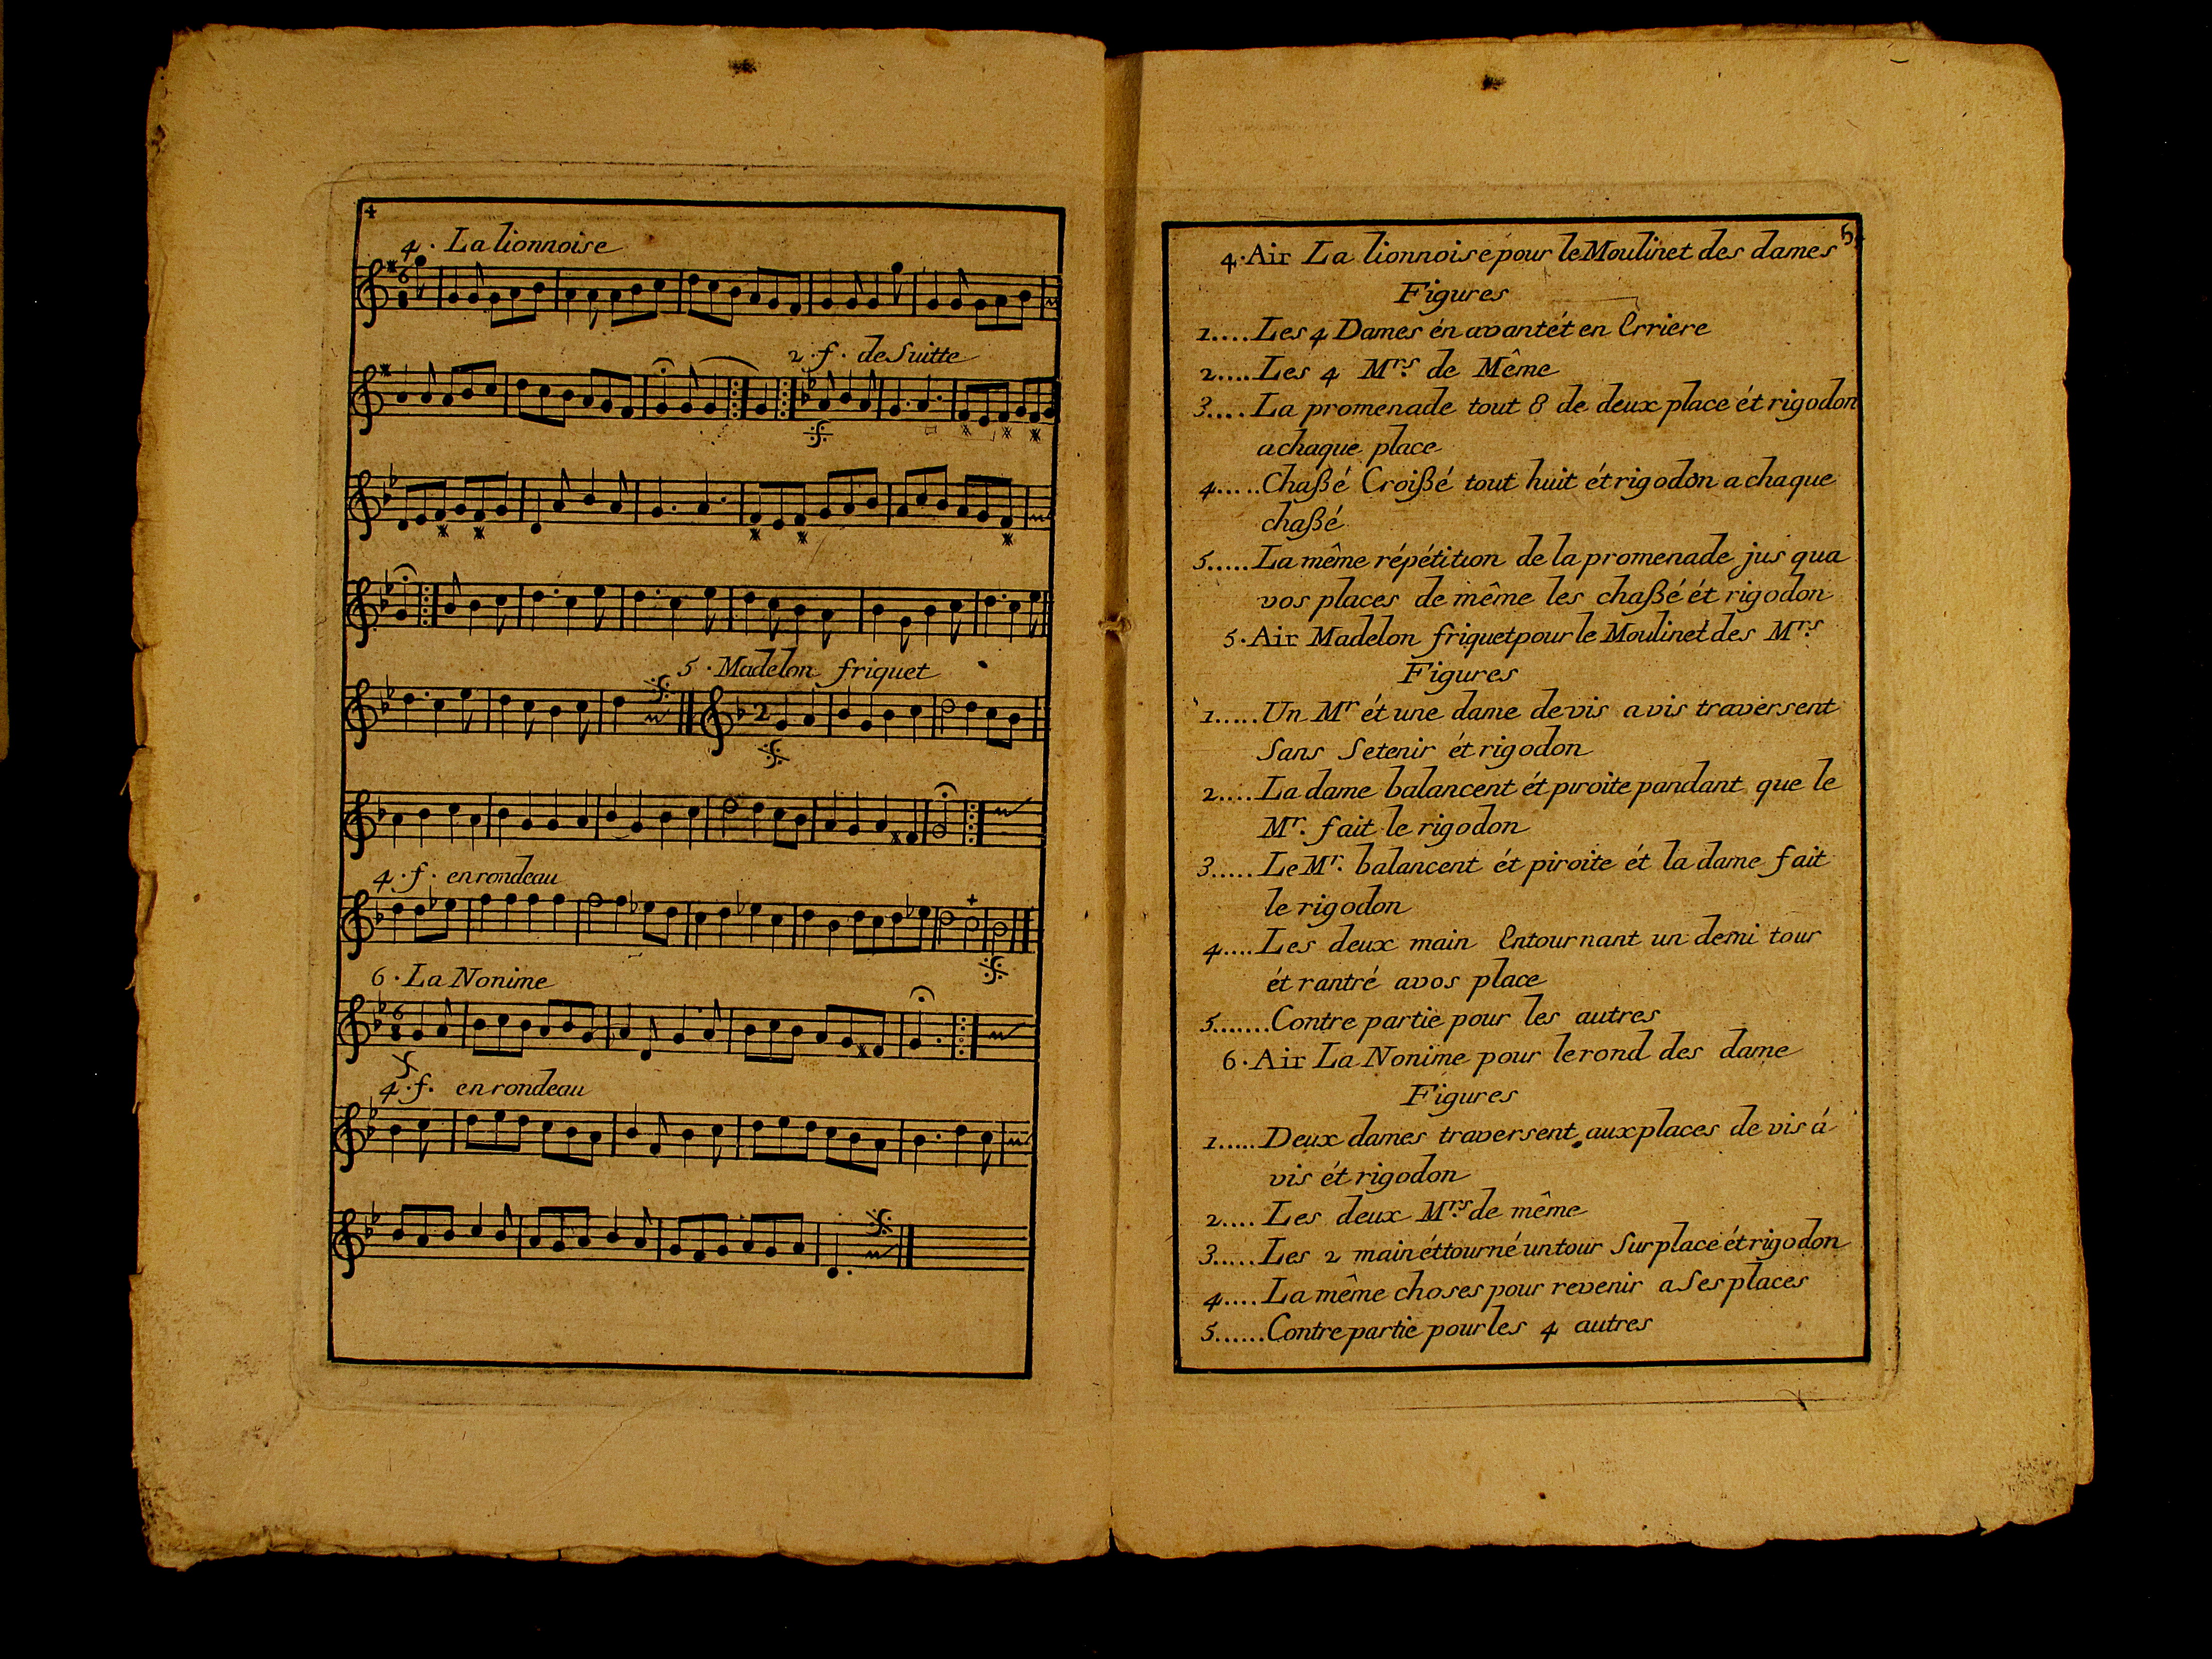 4
4. La lionnoise
2. f. de Suitte
5. Madelon friquet
4. f. en rondeau
6. La Nonime
4. f. en rondeau
5.
4. Air La lionnoise pour le Moulinet des dames
Figures
1....Les 4 Dames én avant ét en Erriere
2....Les 4 Mrs. de Même
3....La promenade tout 8 de deux place ét rigodon
a chaque place
4.....Chaßé Croißé tout huit ét rigodon a chaque
chaßé
5.....La même répétition de la promenade jus qua
vos places de même les chaßé ét rigodon
5. Air Madelon friquet pour le Moulinet des Mrs.
Figures
1.....Un Mr ét une dame de vis a vis traversent
Sans Se tenir ét rigodon
2....La dame balancent ét piroite pandant que le
Mr. fait le rigodon
3.....Le Mr. balancent ét piroite ét la dame fait
le rigodon
4....Les deux main Entournant un demi tour
ét rantré a vos place
5.......Contre partie pour les autres
6. Air La Nonime pour le rond des dame
Figures
1.....Deux dames traversent aux places de vis á
vis ét rigodon
2....Les deux Mrs. de même
3.....Les 2 main ét tourné un tour Sur place ét rigodon
4....La même choses pour revenir a Ses places
5......Contre partie pour les 4 autres